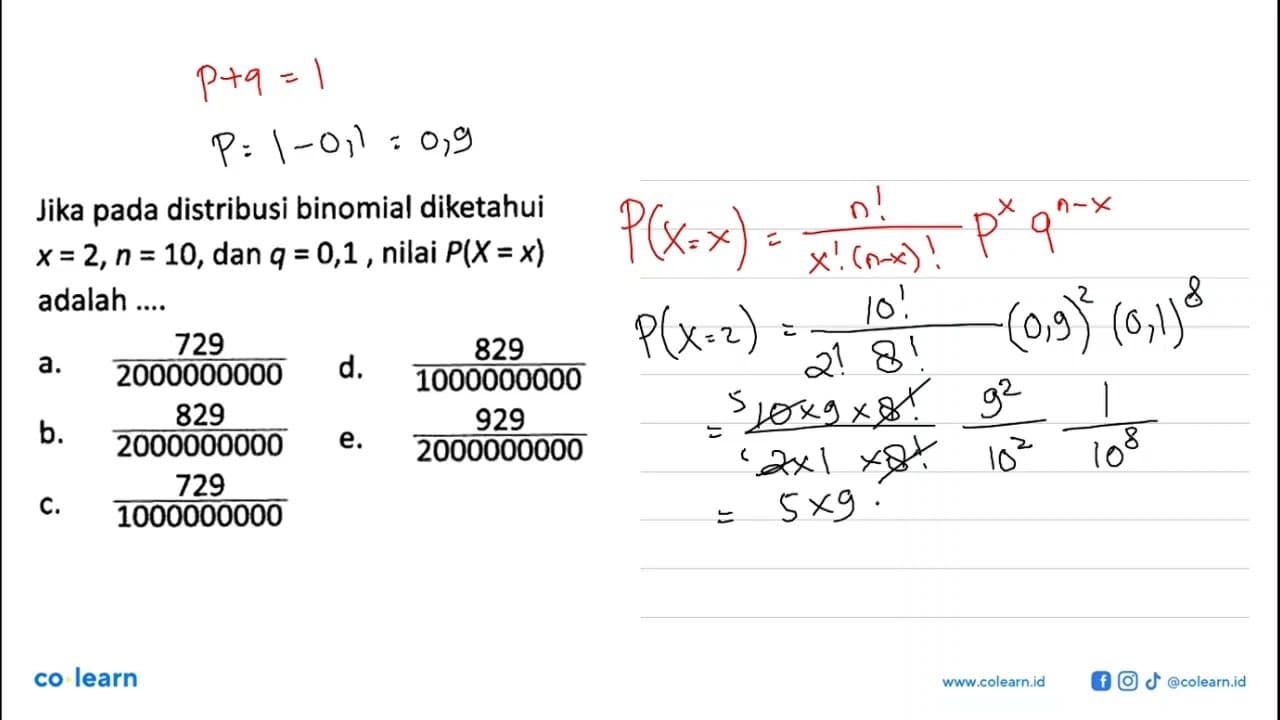 p+q = 1
P = 1-0,1 = 0,9
Jika pada distribusi binomial diketahui
x = 2, n = 10, dan q = 0,1 , nilai P(X = x)
adalah ....
a. 729/2000000000
b. 829/2000000000
c. 729/1000000000
d. 829/1000000000
e. 929/2000000000
P(X=x) = n!/x!.(n-x)! p^x q^n-x
P(X=2) = 10!/2! 8! (0,9)^2 (0,1)^8
= 5 10x9x8!/1 2x1x8! 9^2/10^2 1/10^8
= 5x9 .
co learn
www.colearn.id
@colearn.id